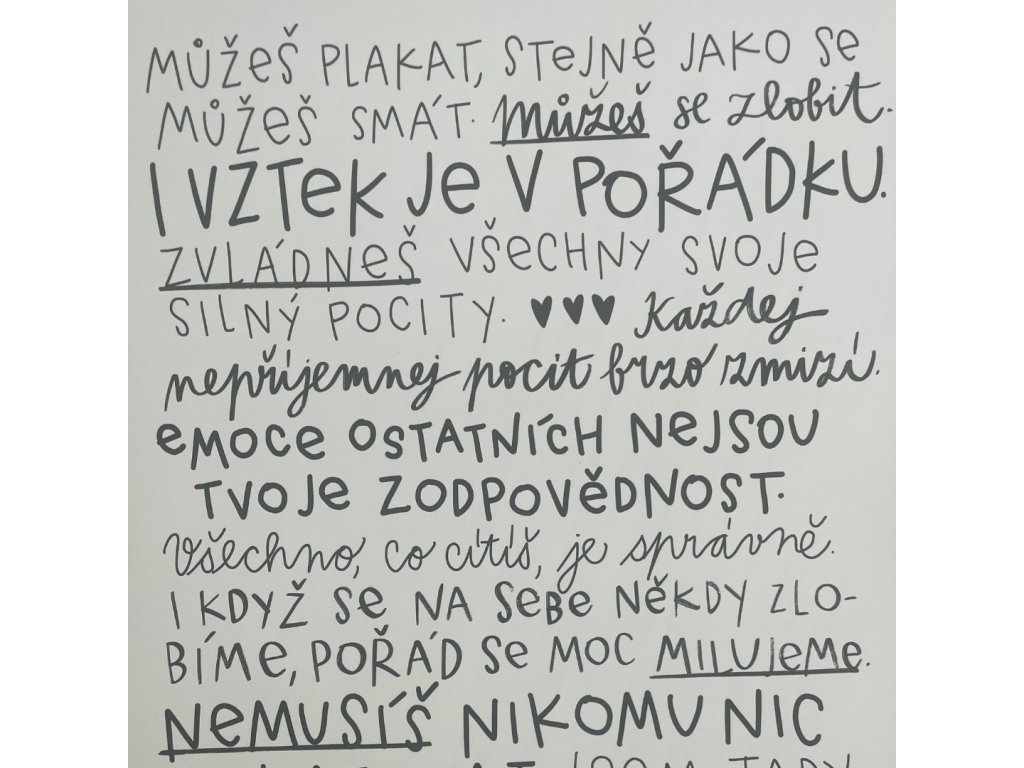 MŮŽEŠ PLAKAT, STEJNĚ JAKO SE
MŮŽEŠ SMÁT. Můžeš se zlobit.
I VZTEK JE V POŘÁDKU.
ZVLÁDNEŠ VŠECHNY SVOJE
SILNÝ POCITY. ♥♥♥ Každej
nepříjemnej pocit brzo zmizí.
EMOCE OSTATNÍCH NEJSOU
TVOJE ZODPOVĚDNOST.
Všechno, co cítíš, je správně.
I KDYŽ SE NA SEBE NĚKDY ZLO-
BÍME, POŘÁD SE MOC MILUJEME.
NEMUSÍŠ NIKOMU NIC